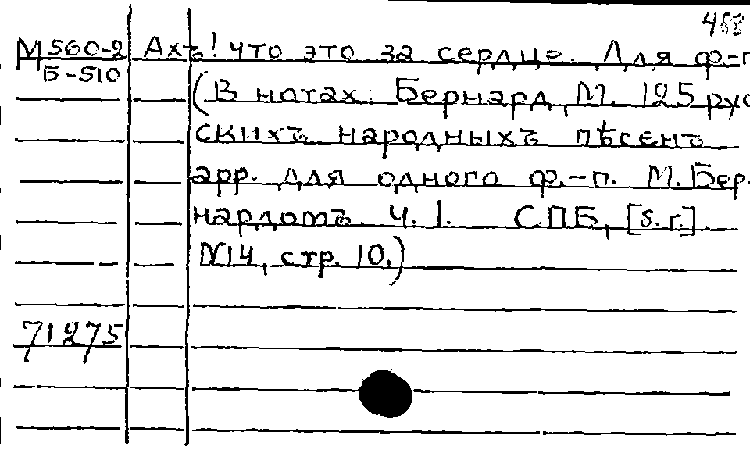 488
М 560-2 Ахъ! что это за сердце. Для ф-п
Б-510
(В нотах: Бернард, М. 125 рус
скихъ народныхъ пѣсенъ
арр. для одного ф.-п. М. Бер-
нардомъ Ч. 1. СПБ, [s. г.]
N14, стр. 10.)
71275